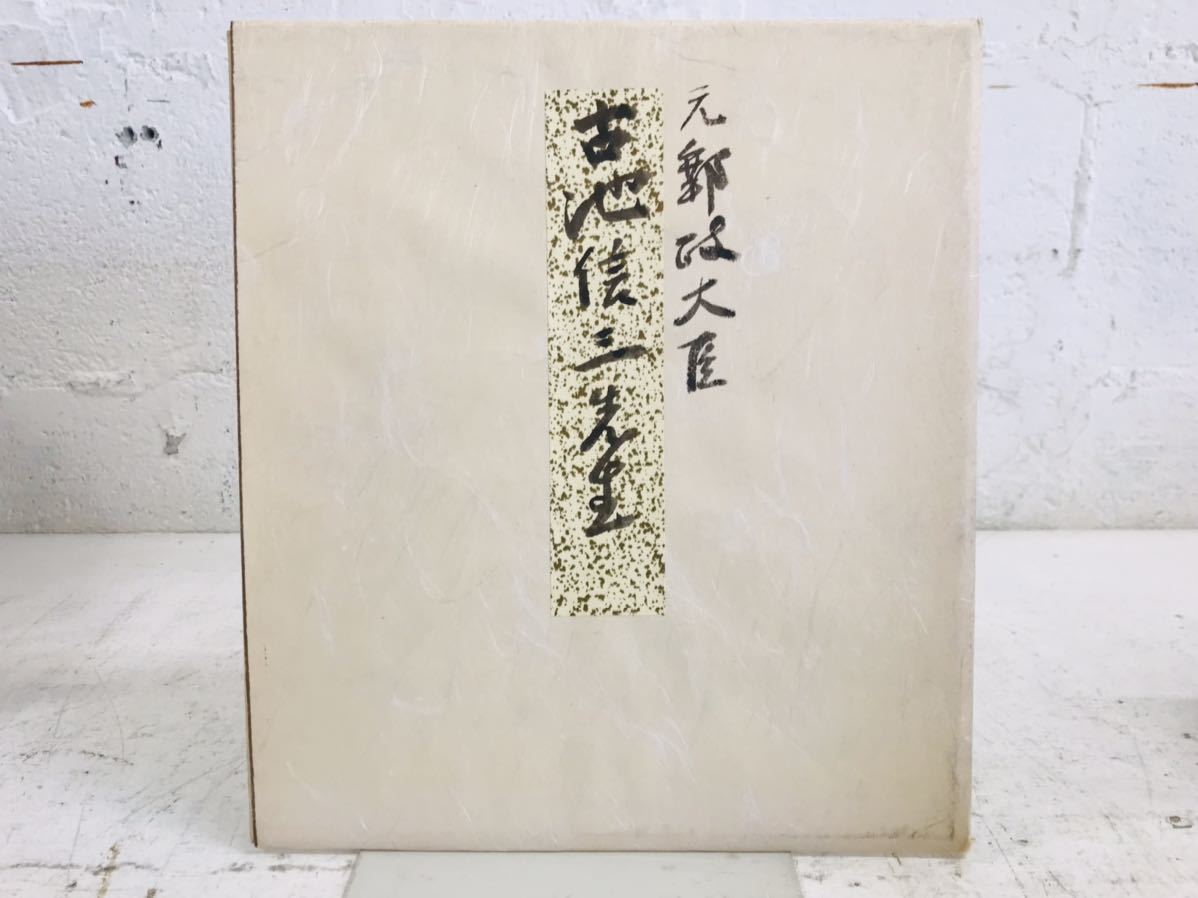 元郵政大臣
古池信三先生